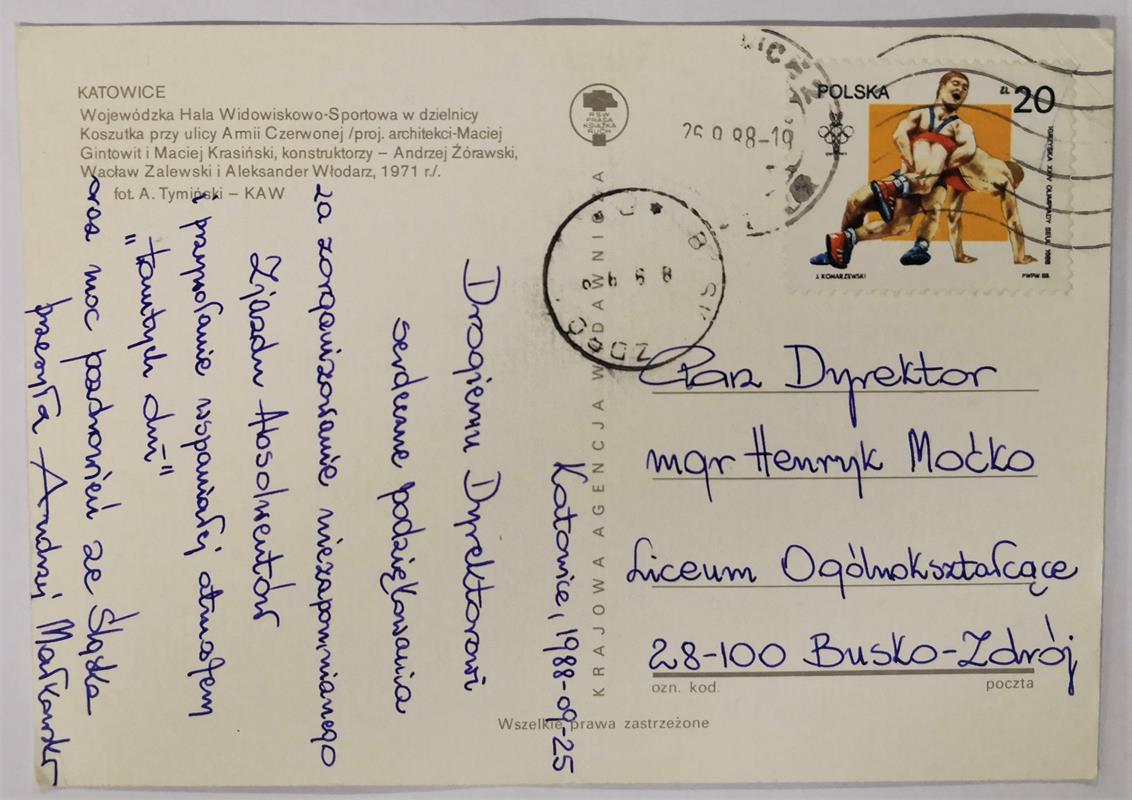 KATOWICE
Wojewódzka Hala Widowiskowo-Sportowa w dzielnicy
Koszutka przy ulicy Armii Czerwonej /proj. architekci-Maciej
Gintowit i Maciej Krasiński, konstruktorzy – Andrzej Żórawski,
Wacław Zalewski i Aleksander Włodarz, 1971 r./.
fot. A. Tymiński – KAW
RSW
PRASA
KSIĄŻKA
RUCH
POLSKA
zł 20
IGRZYSKA XXIV OLIMPIADY SEUL 1988
J. KOMARZEWSKI
PWPW 88.
KRAJOWA AGENCJA WYDAWNICZA
Katowice, 1988-09-25
Drogiemu Dyrektorowi
serdeczne podziękowania
za zorganizowanie niezapomnianego
Zjazdu Absolwentów
i przywołanie wspaniałej atmosfery
"tamtych dni"
oraz moc pozdrowień ze Śląska
przesyła Andrzej Małkowski
Pan Dyrektor
mgr Henryk Moćko
Liceum Ogólnokształcące
28-100 Busko-Zdrój
ozn. kod.
poczta
Wszelkie prawa zastrzeżone